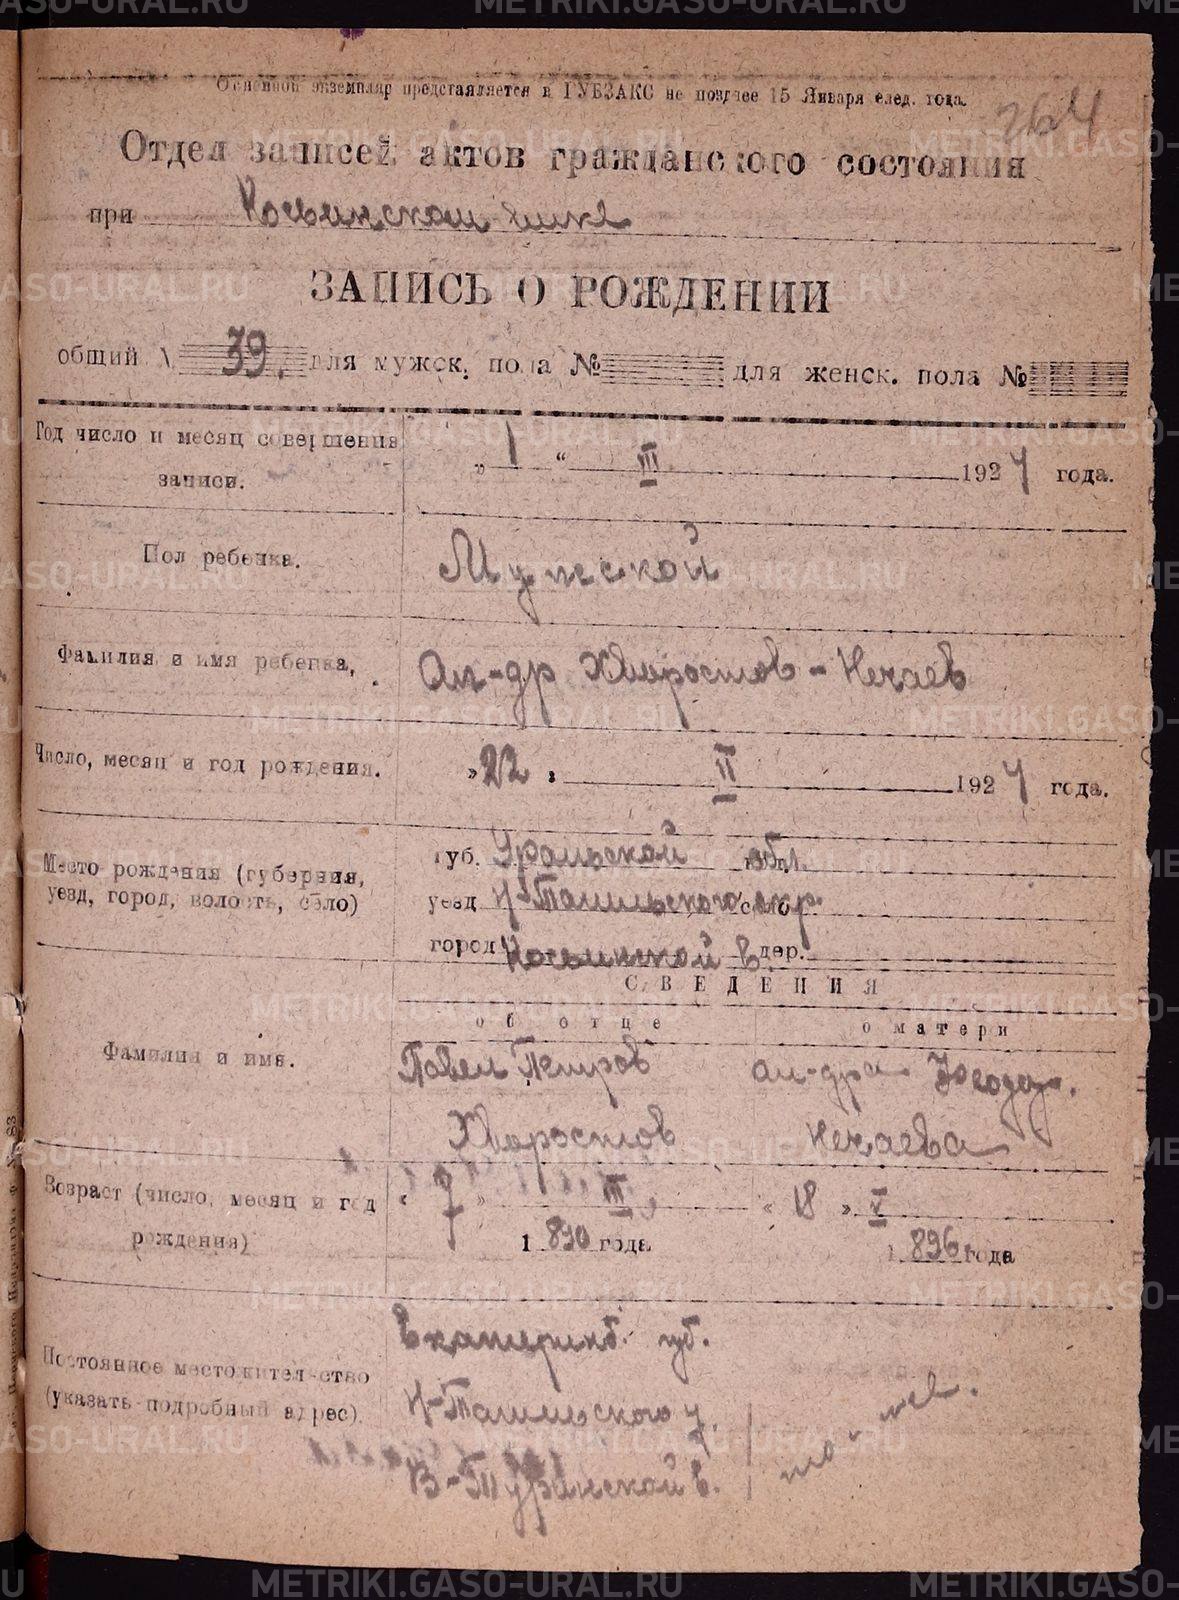 Основной экземпляр представляется в ГУБЗАКС не позднее 15 Января след. года.
264
Отдел записей актов гражданского состояния
при
ЗАПИСЬ О РОЖДЕНИИ
общий № 39. для мужск. пола № для женск. пола №
Год число и месяц совершения записи.
„ 1 “ III 1924 года.
Пол ребенка.
Мужской
Фамилия и имя ребенка,
Ал-др Хворостов-Нечаев
Число, месяц и год рождения.
„ 22 „ II 1924 года.
Место рождения (губерния, уезд, город, волость, село)
губ. Уральской обл.
уезд Н-Тагильского окр.
город в. дер.
СВЕДЕНИЯ
об отце
о матери
Фамилия и имя.
Павел Петров Хворостов
ал-дра Нечаева
Возраст (число, месяц и год рождения)
„ 7 „ III 1890 года
„ 18 „ V 1896 года
Постоянное местожительство (указать подробный адрес).
Екатеринб. губ.
Н-Тагильского у.
В-Туринской в.
METRIKI.GASO-URAL.RU